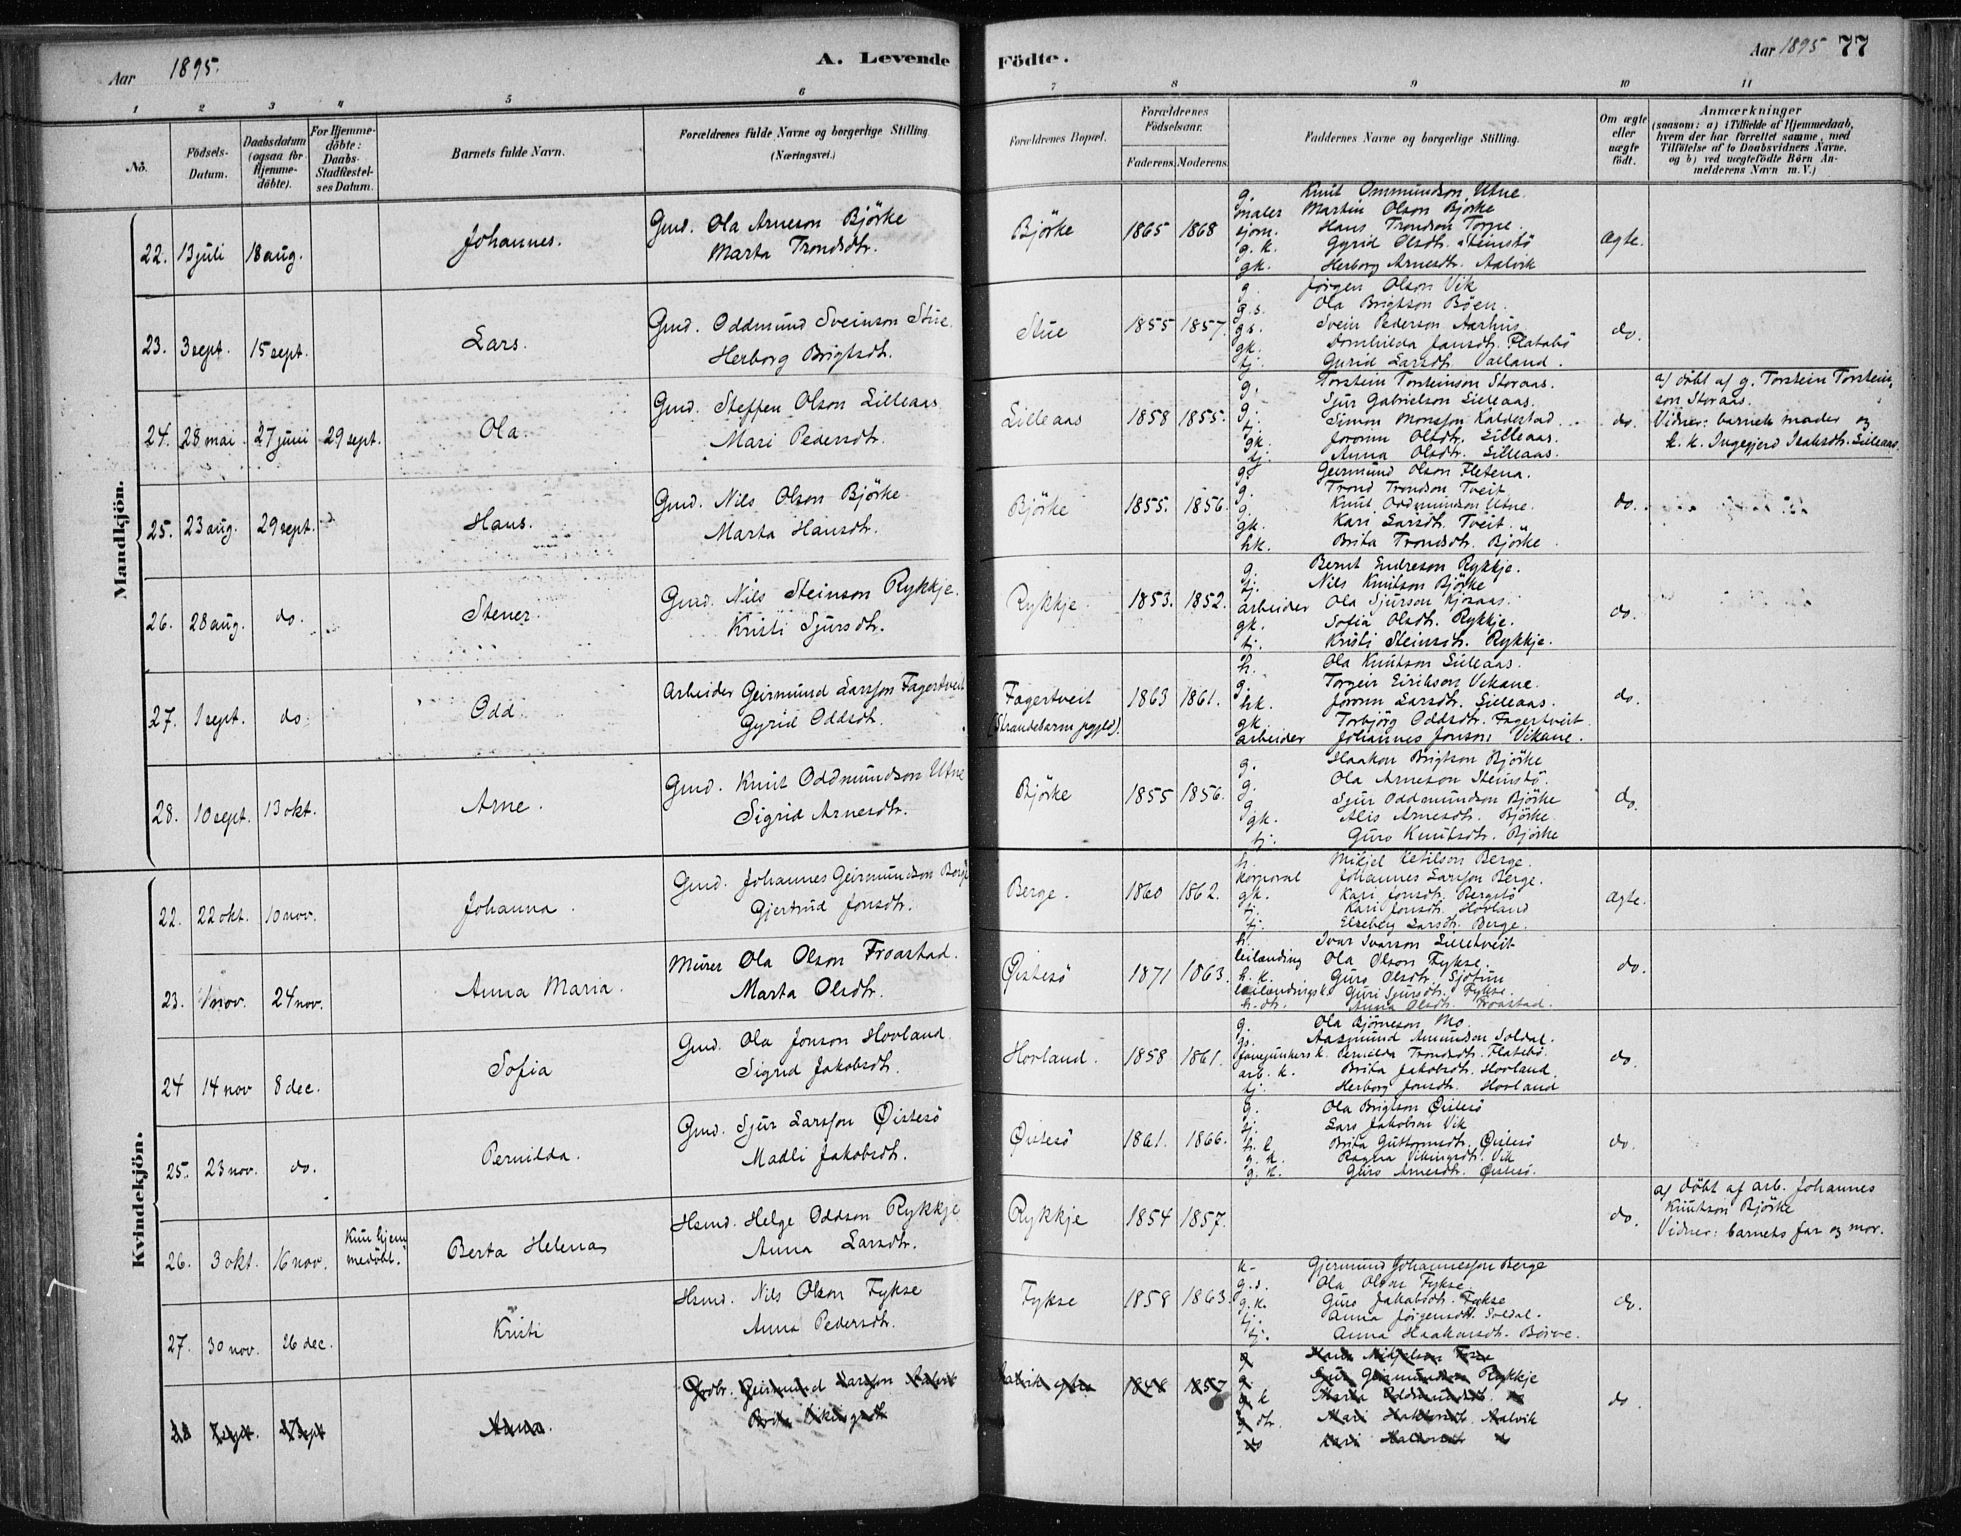 Aar 1895.
A. Levende Födte.
Aar 1895 77
1 2 3 4 5 6 7 8 9 10 11
No.
Födsels-Datum.
Daabsdatum (ogsaa for Hjemme-döbte).
For Hjemme-döbte: Daabs-Stadfæstel-ses Datum.
Barnets fulde Navn.
Forældrenes fulde Navne og borgerlige Stilling
(Næringsvei.)
Forældrenes Bopæl.
Forældrenes Födselsaar.
Faderens. Moderens.
Faddernes Navne og borgerlige Stilling.
Om ægte eller uægte födt.
Anmærkninger
(saasom: a) i Tilfælde af Hjemmedaab,
hvem der har forrettet samme, med
Tilföielse af to Daabsvidners Navne,
og b) ved uægtefödte Börn An-
melderens Navn m. V.)
Mandkjön.
22. 13 juli 18 aug. Johannes. Gmd. Ola Arneson Björke
Marta Trondsdtr.
Björke 1865 1868
g. Knut Ommundson Utne.
maler Martin Olson Björke
sjom. Hans Trondson Torpe.
g. k. Gyrid Olsdtr. Steinstö
gk. Herborg Arnesdtr. Aalvik
Ægte.
23. 3 sept. 15 sept. Lars. Gmd. Oddmund Sveinson Stue.
Herborg Brigtsdtr.
Stue 1855 1857.
g. Jörgen Olson Vik
g.s. Ola Brigtson Böen.
gs. Svein Pederson Aarhus
gk. Jansdtr. Flatabö
tj. Gurid Larsdtr. Valland.
do.
24. 28 mai. 27 juni 29 sept. Ola. Gmd. Steffen Olson Lilleaas
Mari Pedersdtr.
Lilleaas 1858 1855.
g. Torstein Torsteinson Storaas.
g. Sjur Gabrielson Lilleaas.
tj. Simon Monsson Kaldestad.
gk. Joronn Olsdtr. Lilleaas.
tj. Anna Olsdtr. Lilleaas.
do.
a) döbt af g. Torstein Torstein-
son Storaas.
Vidner: barnets moder og
k. k. Ingegjerd Isaksdtr. Lilleaas.
25. 23 aug. 29 sept. Hans. Gmd. Nils Olson Björke
Marta Hansdtr.
Björke 1855. 1856.
g. Geirmund Olson Fletena.
g. Trond Trondson Tveit
g. Knut Oddmundson Utne.
gk. Kari Larsdtr. Tveit
hk. Brita Trondsdtr. Björke.
do.
26. 28 aug. do. Stener. Gmd. Nils Steinson Rykkje.
Kristi Sjursdtr.
Rykkje. 1853. 1852.
g. Bernt Endreson Rykkje.
tj. Nils Knutson Björke
arbeider Ola Sjurson
gk. Sofia Olsdtr. Rykkje.
tj. Kristi Steinsdtr. Rykkje.
do.
27. 1 sept. do. Odd. Arbeider Geirmund Larsson Fagertveit
Gyrid Oddsdtr.
Fagertveit
(Strandebarm pgjeld).
1863 1861.
h. Ola Knutson Lilleaas.
g. Torgeir Eirikson Vikane.
hk. Joronn Larsdtr. Lilleaas.
gk. Torbjörg Oddsdtr. Fagertveit.
arbeider Johannes Jonson Vikane.
do
28. 10 sept. 13 okt. Arne. Gmd. Knut Oddmundson Utne
Sigrid Arnesdtr.
Björke 1855 1856.
g. Haakon Brigtson Björke
g. Ola Arneson Steinstö.
g. Sjur Oddmundson Björke
gk. Alis Arnesdtr. Björke.
tj. Guro Knutsdtr. Björke
do.
Kvindekjön.
22. 22 okt. 10 nov. Johanna. Gmd. Johannes Geirmundson Berge
Gjertrud Jonsdtr.
Berge. 1860 1862.
h. Mikjel Ketilson Berge.
korporal Johannes Larsson Berge.
gk. Kari Jonsdtr. Bergstö
tj. Kari Jonsdtr. Hovland
tj. Elseberg Larsdtr. Berge.
Ægte.
23. 1 nov. 24 nov. Anna Maria. Murer Ola Olson Froastad.
Marta Olsdtr.
Östesö 1871 1863.
h. Ivar Ivarson Lilletveit
leilænding Ola Olson Fykse.
h. k. Guro Olsdtr. Sjotun
leilændingsk. Guri Sjursdtr. Fykse.
h. dtr. Anna Olsdtr. Froastad.
do.
24 14 nov 8 dec. Sofia Gmd. Ola Jonson Hovland.
Sigrid Jakobsdtr.
Hovland. 1858 1861.
g. Ola Björneson Mo.
gs. Aasmund Amundson Soldal.
Pernilda Trondsdtr. Flatebö.
arb. k. Brita Jakobsdtr. Hovland.
tj. Herborg Jonsdtr. Hovland
do.
25. 23 nov. do. Pernilda. Gmd. Sjur Larsson Östesö
Madli Jakobsdtr.
Östesö 1861. 1866.
g. Ola Brigtson Östesö
tj. Lars Jakobson Vik
h. k Brita Guttormsdtr. Östesö
g. k. Ragna Vikingsdtr. Vik
g. k. Guro Arnesdtr. Östesö.
do.
26. 3 okt. 16 nov. Kun hjem-
medöbt. Berta Helena Hsmd. Helge Oddson Rykkje
Anna Larsdtr.
Rykkje 1854 1857.
do.
a) döbt af arb. Johannes
Knutson Björke
Vidner: barnets far og mor.
27. 30 nov. 26 dec. Kristi Hsmd. Nils Olson Fykse
Anna Pedersdtr.
Fykse 1858 1863.
k. Gjermund Johannesson Berge
g.s. Ola Olson Fykse
g.k. Guro Jakobsdtr. Fykse
tj. Anna Jörgensdtr. Soldal.
tj. Anna Haakonsdtr. Börve.
do.
28 7 sept. 27 sept Anna. Grdbr. Geirmund Larsson Aalvik
Brita Vikingsdtr
Aalvik 1848 1857
g
g. Sjur Geirmundson Rykkje
g k Maria Oddmundsdtr
g dtr. Mari Aalvik
do Kari do
do.